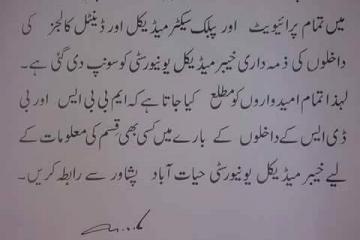 میں تمام پرائیویٹ اور پبلک سیکٹر میڈیکل اور ڈینٹل کالجز کی
داخلوں کی ذمہ داری خیبر میڈیکل یونیورسٹی کو سونپ دی گئی ہے۔
لہذا تمام امیدواروں کو مطلع کیا جاتا ہے کہ ایم بی بی ایس اور بی
ڈی ایس کے داخلوں کے بارے میں کسی بھی قسم کی معلومات کے
لیے خیبر میڈیکل یونیورسٹی حیات آباد پشاور سے رابطہ کریں۔